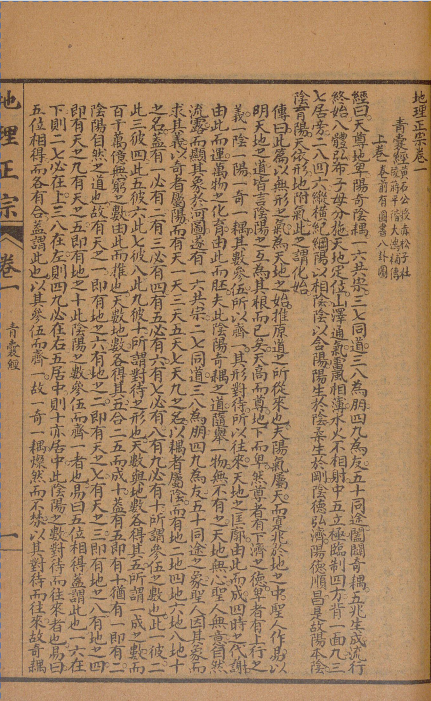 地理正宗卷一
青囊經 黃石公授 赤松子社
陵府平階大鴻補傳
上卷 卷前有圖書八卦圖
經曰天尊地卑陽奇陰耦一六共宗二七同道三八為朋四九為友五十同途闔闢奇耦五兆生成流行
終始八體弘布子母分施天地定位山澤通氣雷風相薄水火不相射中五立極臨制四方背一面九三
七居旁二八四六縱橫紀綱陽以相陰陰以含陽陽生於陰柔生於剛陰德弘濟陽德順昌是故陽本陰
陰育陽天依形地附氣此之謂化始
傳曰此篇以無形之氣為天地之始推原道之所從來也夫陽氣屬天而實兆於地之中聖人作易以
明天地之道皆言陰陽之互為其根而已矣天高而尊地下而卑然尊者有下濟之德卑者有上行之
義一陰一陽一奇一耦其數參伍所以齊一其形對待所以往來天地之匡廓由此而成四時之代謝
由此而運萬物之化育由此而胚夫此陰陽奇耦之道隨舉一物無不有之天地無心聖人無意自然
流露而顯其象於河圖遂有一六共宗二七同道三八為朋四九為友五十同途之象聖人因其象而
求其義以奇者屬陽而有天一天三天五天七天九之名以耦者屬陰而有地二地四地六地八地十
之名蓋有一必有二有三必有四有五必有六有七必有八有九必有十所謂參伍之數也此一彼二
此三彼四此五彼六此七彼八此九彼十所謂對待之形也天數與地數各得其五所謂一成之數而
百千萬億無窮之數由此而推也天數地數各得其五合二五而成十蓋有五即有十猶有一即有二
陰陽自然之道也故有天之一即有地之六有地之二即有天之七有天之三即有地之八有地之四
即有天之九有天之五即有地之十此陰陽之數參伍而齊一者也易曰五位相得蓋謂此也一六在
下則二七必在上三八在左則四九必在右五居中則十亦居中此陰陽之數對待而往來者也易曰
五位相得而各有合蓋謂此也以其參伍而齊一故一奇一耦燦然而不紊以其對待而往來故奇耦
地理正宗 卷一 青囊經 一